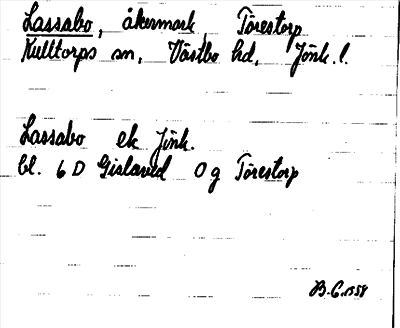 Lassabo, åkermark, Törestorp
Kulltorps sn, Västbo hd, Jönk. l.
Lassabo ek Jönk.
bl. 6 D Gislaved 0 g Törestorp
B.G. 1958